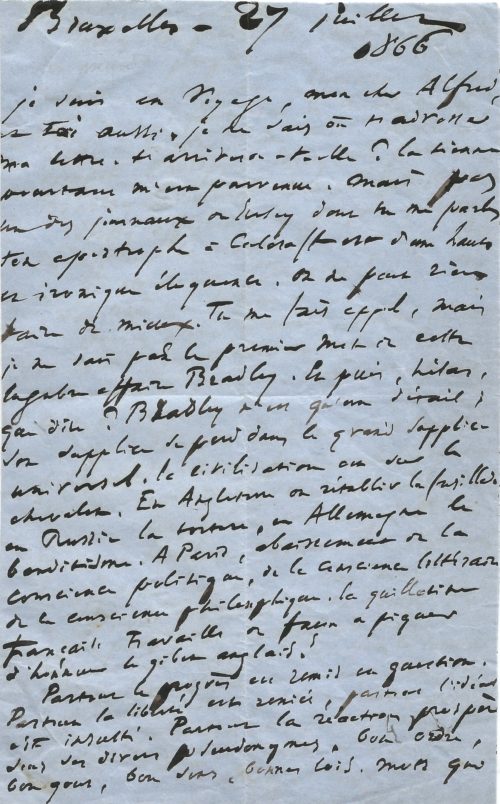 Bruxelles - 27 juillet
1866
je suis en voyage, mon cher Alfred,
et toi aussi. je ne sais où t'adresser
ma lettre. t'arrivera-t-elle ? la tienne
pourtant m'est parvenue. mais pas
un des journaux de Jersey dont tu me parles
ton apostrophe à Calcraft est d'une haute
et ironique éloquence. on ne peut rien
faire de mieux. Tu me fais appel, mais
je ne sais pas le premier mot de cette
lugubre affaire Bradley. Et puis, hélas,
que dire ? Bradley n'est qu'un détail ;
son supplice se perd dans le grand supplice
universel. la civilisation est sur le
chevalet. En Angleterre on rétablit la fusillade,
en Russie la torture, en Allemagne le
banditisme. A Paris, abaissement de la
conscience politique, de la conscience littéraire
de la conscience philosophique. la guillotine
française travaille de façon à piquer
d'honneur le gibet anglais.
Partout le progrès est remis en question.
Partout la liberté est reniée, partout l'idéal
est insulté. Partout la réaction prospère
sous ses divers pseudonymes, bon ordre,
bon goût, bon sens, bonnes lois. mots qui